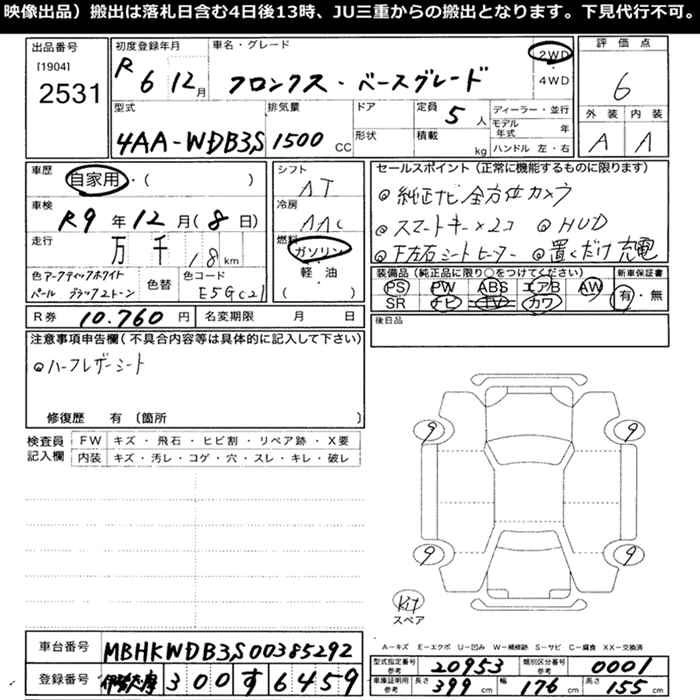 映像出品）搬出は落札日含む4日後13時、JU三重からの搬出となります。下見代行不可。
出品番号
[1904]
2531
初度登録年月
R 6 12月
車名・グレード
フロンクス・ベースグレード
2WD
4WD
評価点
6
外装 内装
A A
型式
4AA-WDB3S
排気量
1500 CC
ドア
形状
定員 5 人
積載 kg
ディーラー・並行
モデル年式 年
ハンドル 左・右
車歴
自家用・( )
車検
R9 年 12 月(8 日)
走行
万 千 18 km
色 アークティックホワイト
パール ブラック2トーン
色替
色コード
E5G(2)
シフト
AT
冷房
AAC
燃料
ガソリン
軽・油
( )
セールスポイント(正常に機能するものに限ります)
◎純正ナビ全方位カメラ
◎スマートキー×2コ ◎HUD
◎左右シートヒーター ◎置くだけ充電
装備品(純正品に限り○をつけてください)
PS PW ABS エアB AW
SR ナビ TV カワ
新車保証書
有・無
後日品
R券 10.760 円
名変期限 月 日
注意事項申告欄(不具合内容等は具体的に記入して下さい)
◎ハーフレザーシート
修復歴 有 (箇所 )
検査員
記入欄
FW キズ・飛石・ヒビ割・リペア跡・X要
内装 キズ・汚レ・コゲ・穴・スレ・キレ・破レ
9 9
9 9
Kit
スペア
A-キズ E-エクボ U-凹み W-補修跡 S-サビ C-腐食 XX-交換済
車台番号 MBHKWDB3S00385292
登録番号 300 す 6459
型式指定番号 参考 20953
類別区分番号 参考 0001
車庫証明用 参考 長さ 399 cm 幅 176 cm 高さ 155 cm